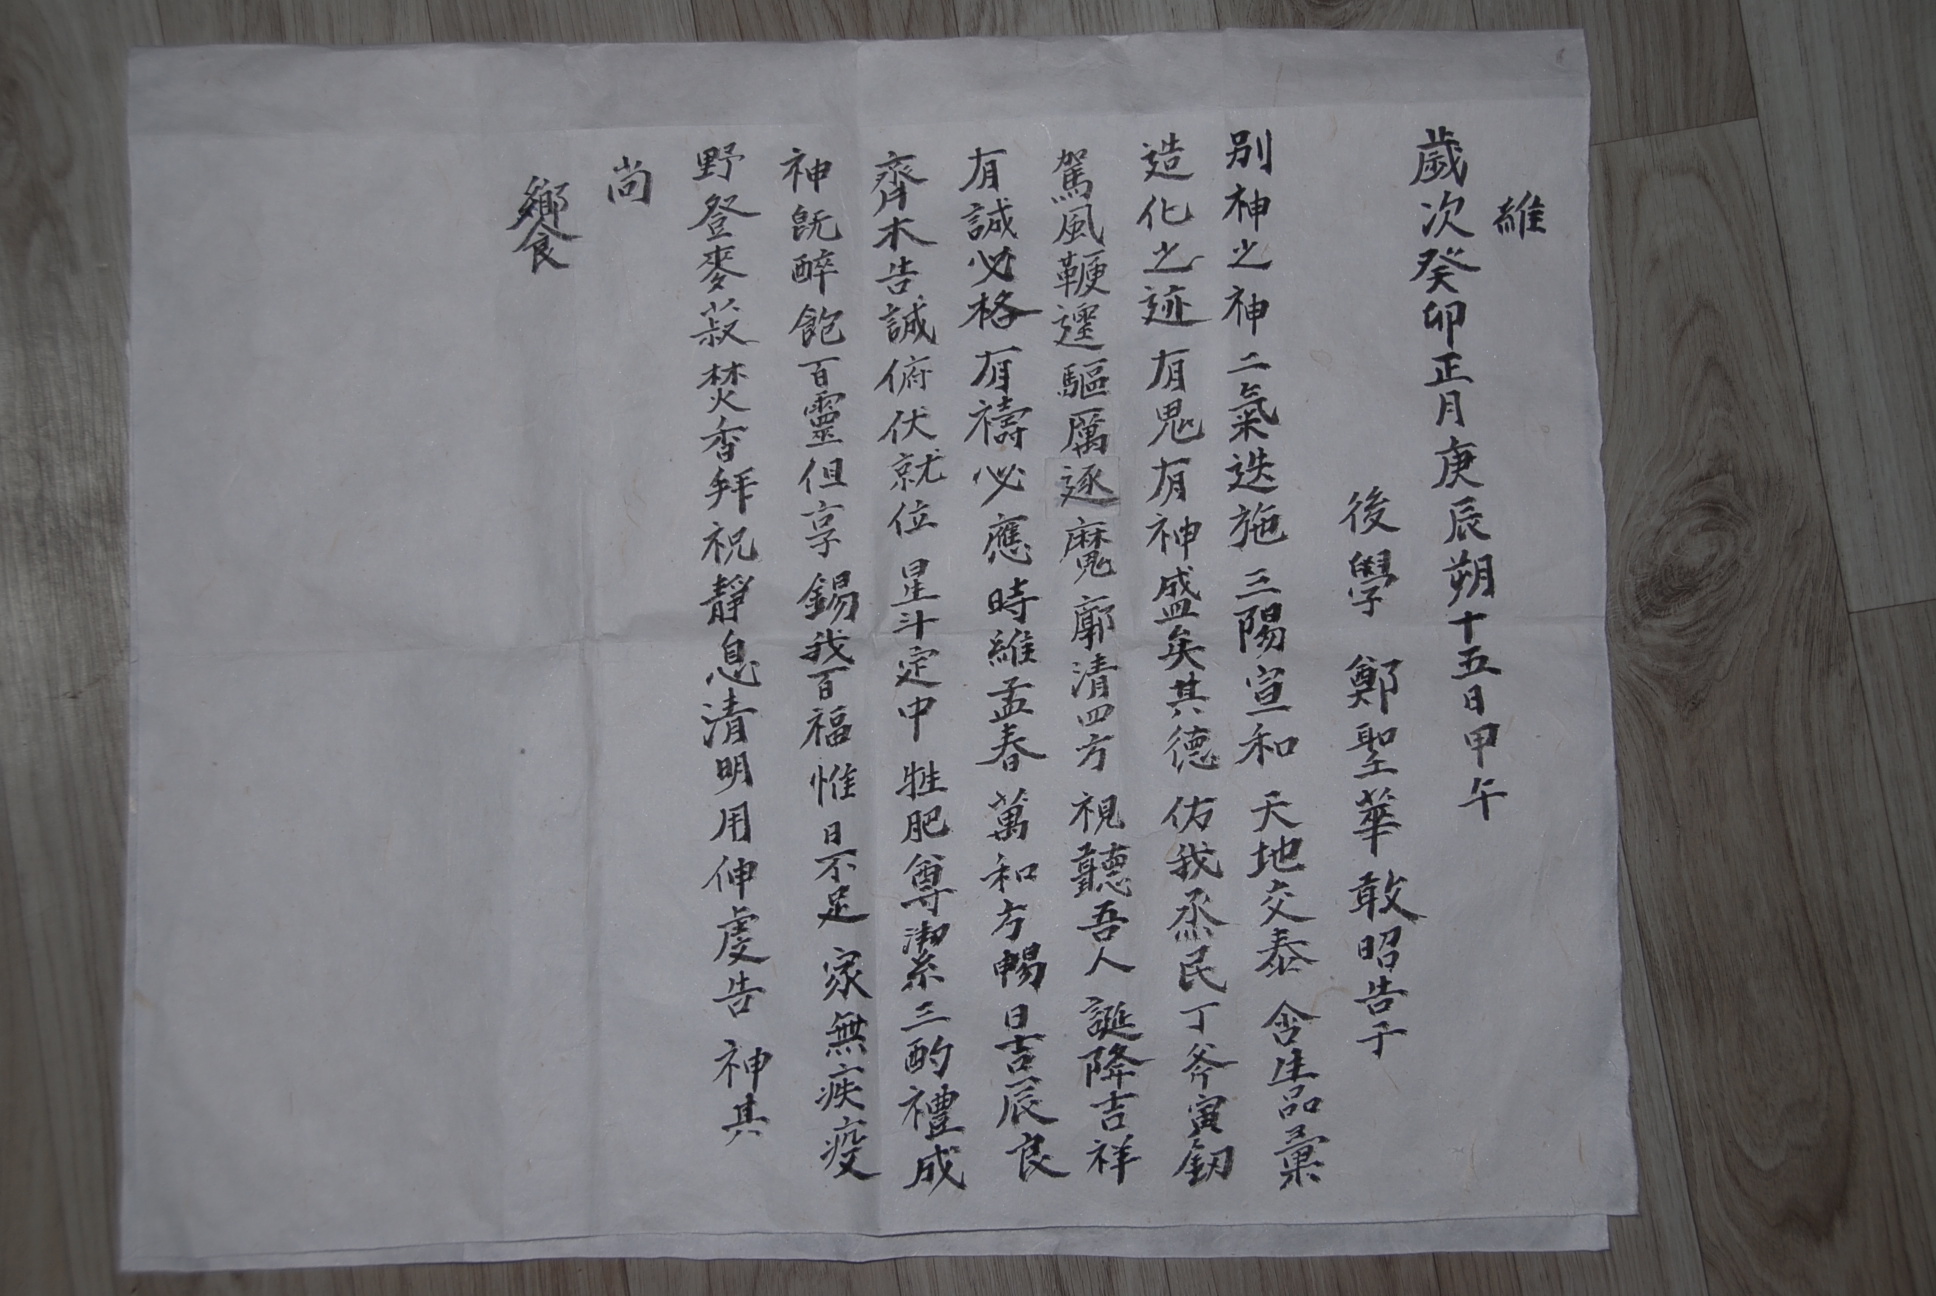 維
歲次癸卯正月庚辰朔十五日甲午
後學 鄭聖華 敢昭告于
別神之神 二氣迭施 三陽宣和 天地交泰 含生品彙
造化之迹 有鬼有神 盛矣其德 佑我烝民 丁斧寅釰
駕風鞭霆 驅厲逐魔 廓清四方 視聽吾人 誕降吉祥
有誠必格 有禱必應 時維孟春 萬和方暢 日吉辰良
齊木告誠 俯伏就位 星斗定中 牲肥尊潔 三酌禮成
神旣醉飽 百靈但享 錫我百福 惟日不足 家無疾疫
野登麥菽 焚香拜祝 靜息清明 用伸虔告 神其
尚
饗